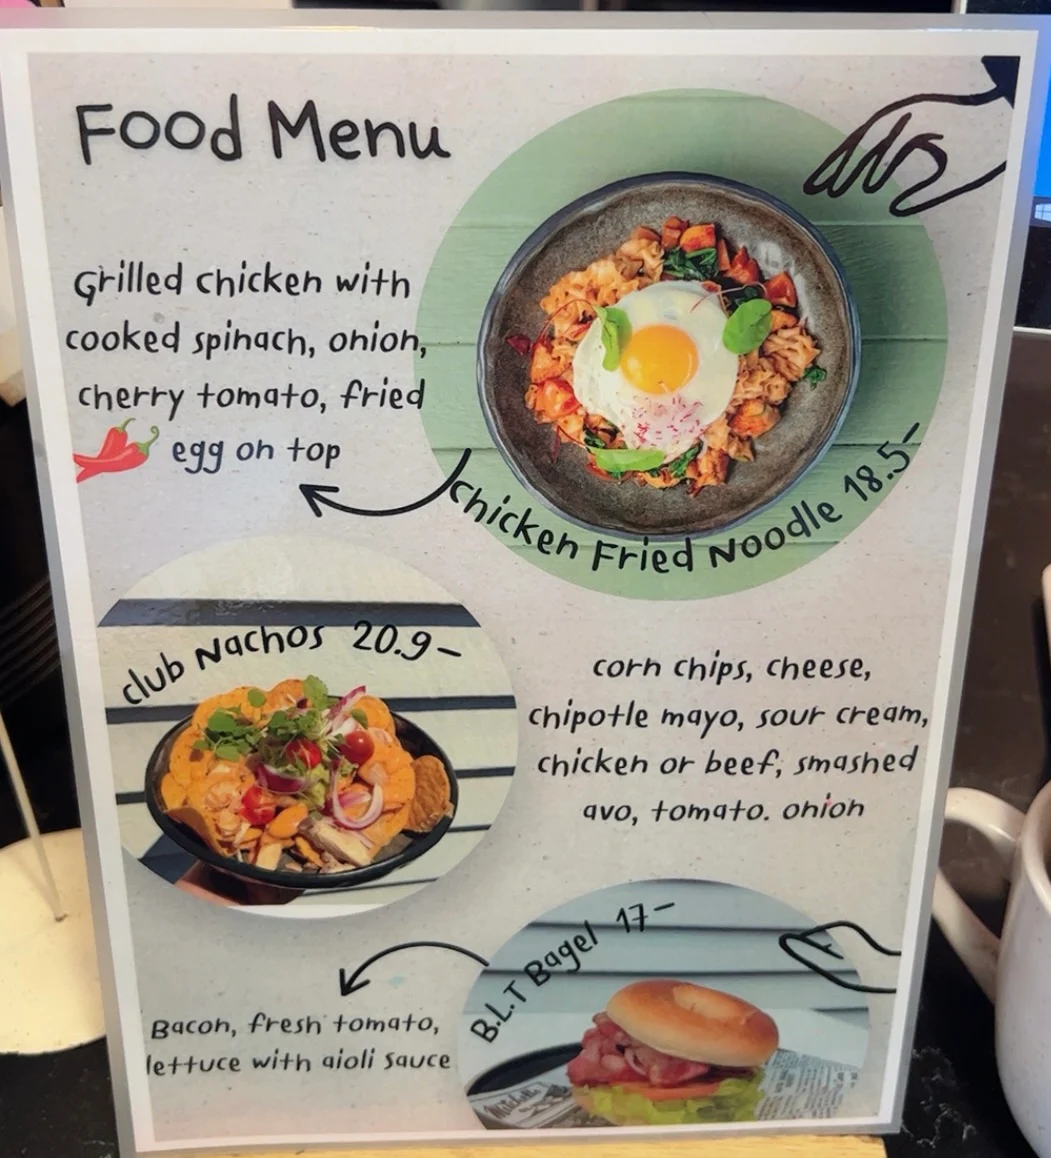 Food Menu
Grilled chicken with
cooked spinach, onion,
cherry tomato, fried
egg on top
Chicken Fried Noodle 18.5-
Club Nachos 20.9-
corn chips, cheese,
chipotle mayo, sour cream,
chicken or beef, smashed
avo, tomato. onion
B.L.T Bagel 17-
Bacon, fresh tomato,
lettuce with aioli sauce